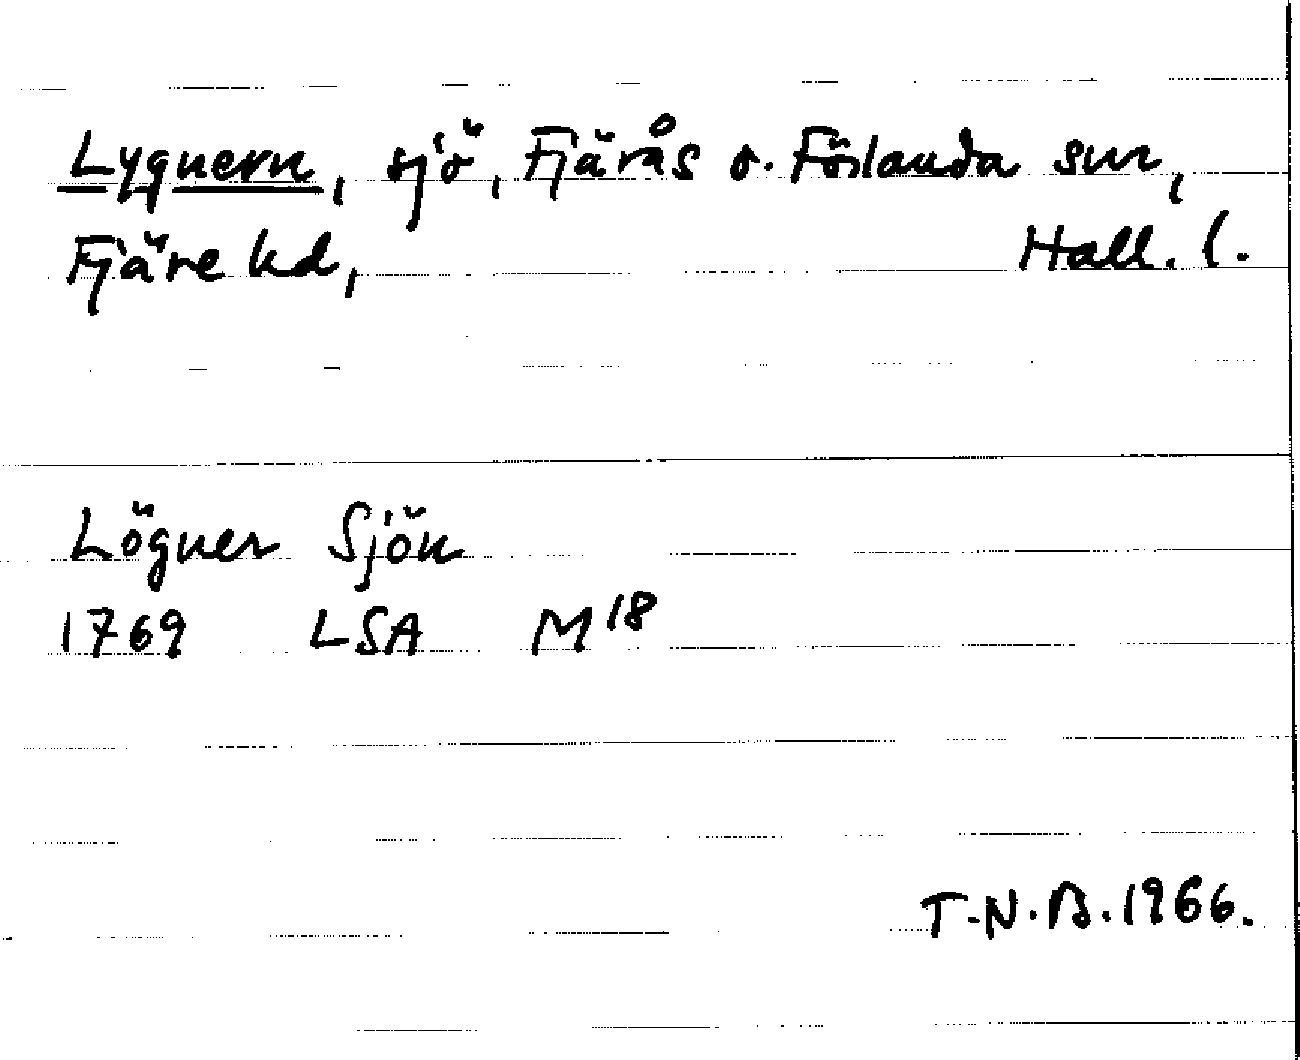 Lygnern, sjö, Fjärås o. Förlanda snr,
Fjäre hd, Hall. l.
Lögner Sjön
1769 LSA M18
T.N.B. 1966.